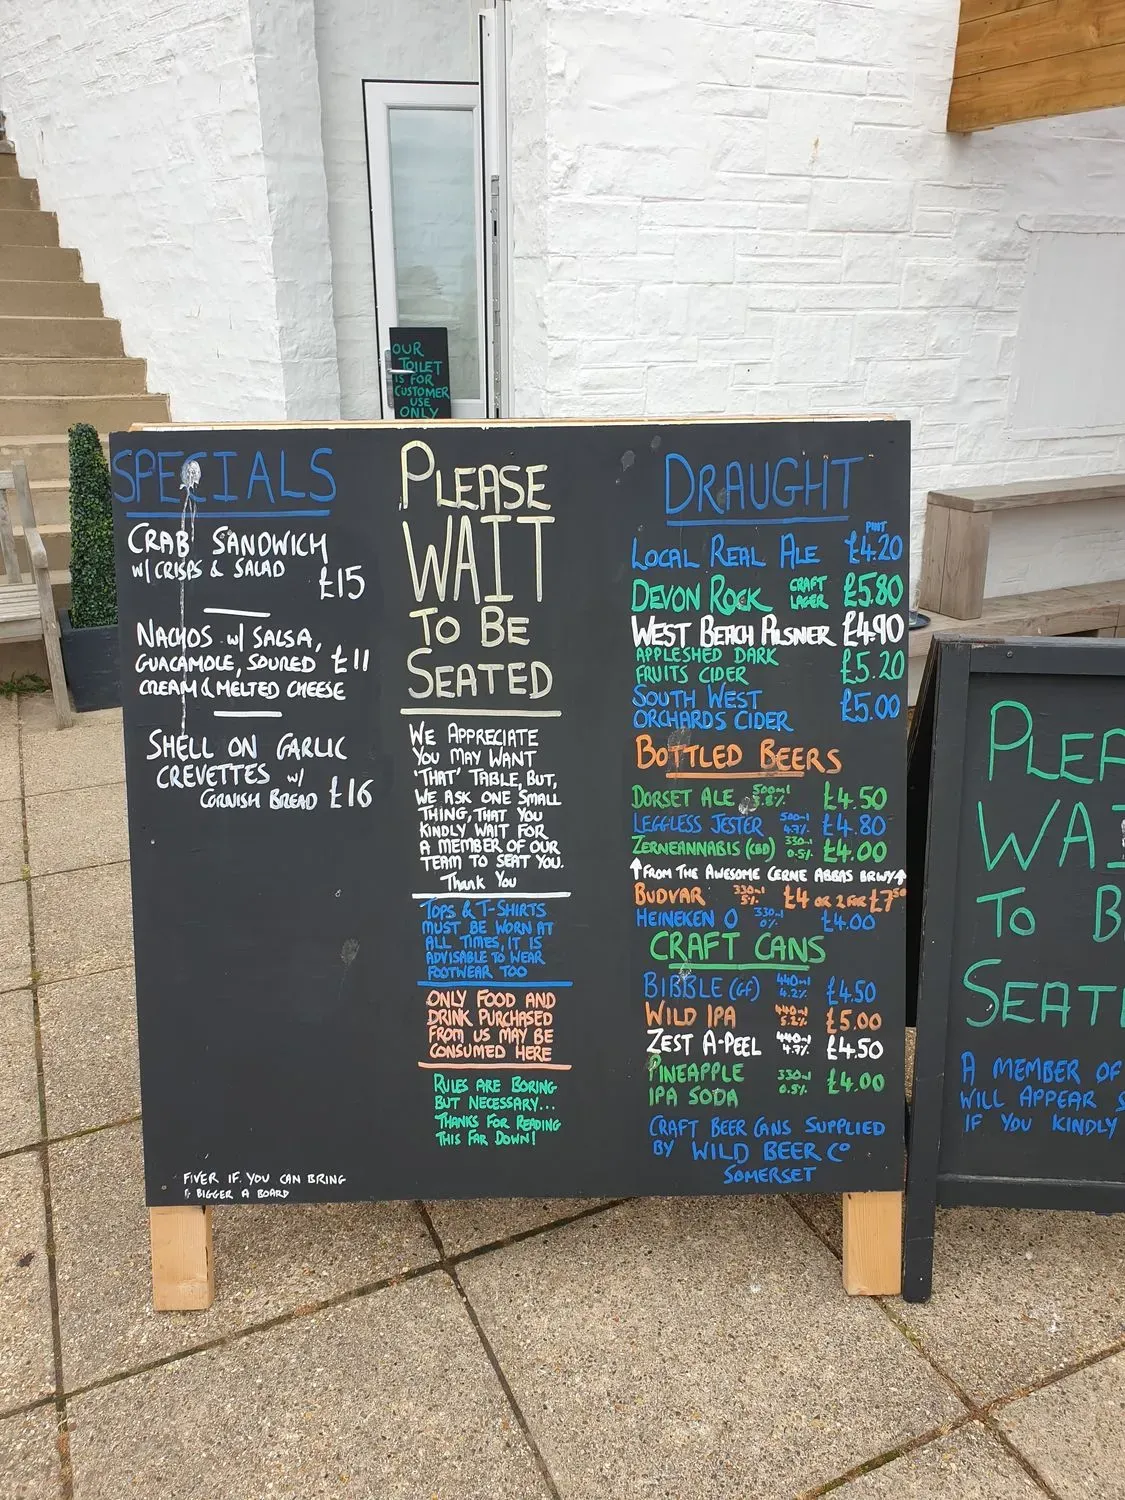 OUR
TOILET
IS FOR
CUSTOMER
USE
ONLY
SPECIALS
CRAB SANDWICH
W/ CRISPS & SALAD
£15
NACHOS W/ SALSA,
GUACAMOLE, SOURED £11
CREAM & MELTED CHEESE
SHELL ON GARLIC
CREVETTES W/
CORNISH BREAD £16
FIVER IF YOU CAN BRING
A BIGGER A BOARD
PLEASE
WAIT
TO BE
SEATED
WE APPRECIATE
YOU MAY WANT
'THAT' TABLE, BUT,
WE ASK ONE SMALL
THING, THAT YOU
KINDLY WAIT FOR
A MEMBER OF OUR
TEAM TO SEAT YOU.
Thank You
TOPS & T-SHIRTS
MUST BE WORN AT
ALL TIMES, IT IS
ADVISABLE TO WEAR
FOOTWEAR TOO
ONLY FOOD AND
DRINK PURCHASED
FROM US MAY BE
CONSUMED HERE
RULES ARE BORING
BUT NECESSARY...
THANKS FOR READING
THIS FAR DOWN!
DRAUGHT
PINT
LOCAL REAL ALE £4.20
DEVON ROCK CRAFT LAGER £5.80
WEST BEACH PILSNER £4.90
APPLESHED DARK
FRUITS CIDER £5.20
SOUTH WEST
ORCHARDS CIDER £5.00
BOTTLED BEERS
DORSET ALE 500ml 3.8% £4.50
LEGGLESS JESTER 500ml 4.7% £4.80
ZERNEANNABIS (CBD) 330ml 0.5% £4.00
↑FROM THE AWESOME CERNE ABBAS BRWY↑
BUDVAR 330ml 5% £4 OR 2 FOR £7.50
HEINEKEN 0 330ml 0% £4.00
CRAFT CANS
BIBBLE (GF) 440ml 4.2% £4.50
WILD IPA 440ml 5.2% £5.00
ZEST A-PEEL 440ml 4.7% £4.50
PINEAPPLE
IPA SODA 330ml 0.5% £4.00
CRAFT BEER CANS SUPPLIED
BY WILD BEER Co
SOMERSET
PLEA
WAI
TO B
SEAT
A MEMBER OF
WILL APPEAR S
IF YOU KINDLY